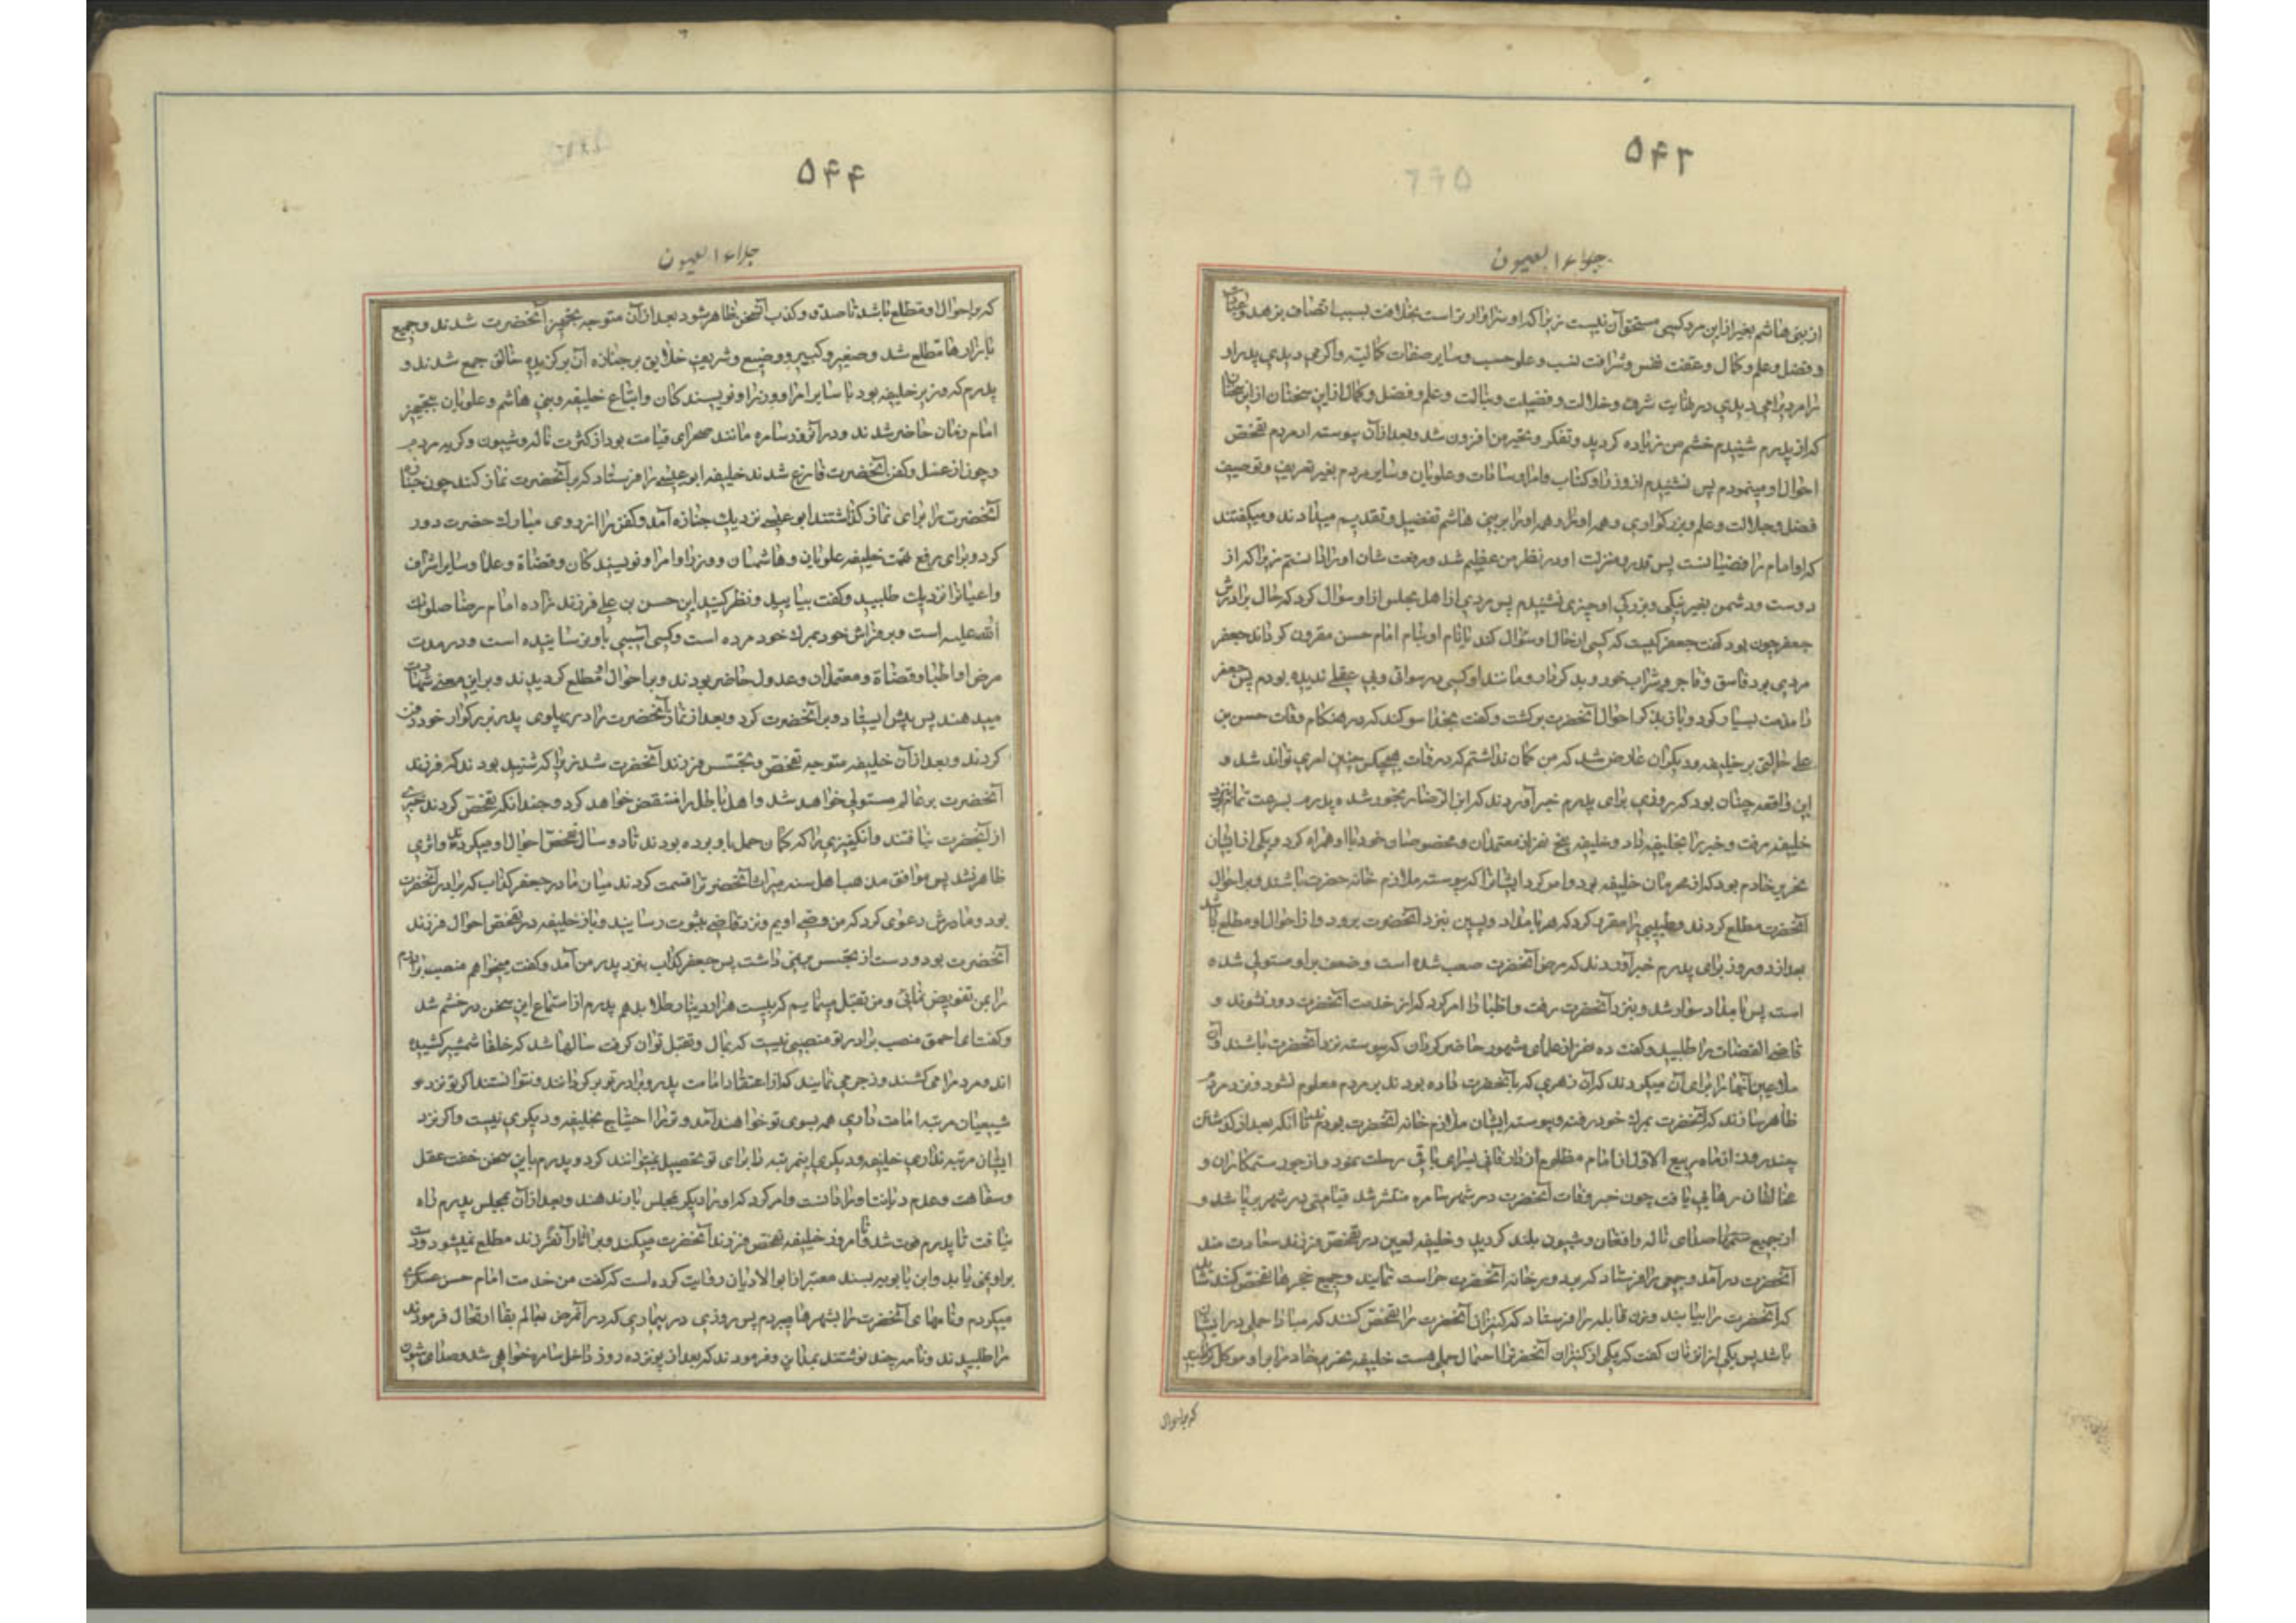 ۵۴۳
جلاء العیون
از بنی هاشم بغیر از این مرد کسی مستحق آن نیست زیرا که او سزاوارتر است بخلافت بسبب اتصاف بزهد و عبادت
و فضل و علم و کمال و عفت نفس و شرافت نسب و علو حسب و سایر صفات کمالیه و اگر می دیدی پدر او
را مردی را می دیدی در نهایت شرف و جلالت و فضیلت و نبالت و علم و فضل و کمال از این سخنان از این
که از پدرم شنیدم خشم من زیاده گردید و تفکر و تحیر من افزون شد و بعد از آن پیوسته از مردم تفحص
احوال او مینمودم پس نشنیدم از وزرا و کتاب و امرا و سادات و علویان و سایر مردم بغیر تعریف و توصیف
فضل و جلالت و علم و بزرگواری و همه او را و همه او را بر بنی هاشم تفضیل و تقدیم میدادند و میگفتند
که او امام رافضیانست پس قدر و منزلت او در نظر من عظیم شد و رفعت شان او را دانستم زیرا که از
دوست و دشمن بغیر نیکی و بزرگی او چیزی نشنیدم پس مردی از اهل مجلس از او سؤال کرد که حال برادرش
جعفر چون بود گفت جعفر کیست که کسی از حال او سؤال کند یا نام او بنام امام حسن مقرون گرداند جعفر
مردی بود فاسق و فاجر و شراب خور و بد کردار و مانند او کسی در رسوائی و بی عقلی ندیده بودم پس جعفر
را مذمت بسیار کرد و باز بذکر احوال آنحضرت برگشت و گفت بخدا سوگند که در هنگام وفات حسن بن
علی حالتی بر خلیفه و دیگران عارض شد که من گمان نداشتم که در وفات هیچکس چنین امری تواند شد و
این واقعه چنان بود که روزی برای پدرم خبر آوردند که ابن الرضا رنجور شده پدرم بسرعت تمام نزد
خلیفه رفت و خبر را بخلیفه داد و خلیفه پنج نفر از معتمدان و مخصوصان خود با او همراه کرد و یکی از ایشان
نحریر خادم بود که از محرمان خلیفه بود و امر کرد ایشانرا که پیوسته ملازم خانه حضرت باشند و بر احوال
آنحضرت مطلع گردند و طبیبی را مقرر کرد که هر بامداد و پسین بنزد آنحضرت برود و از احوال او مطلع باشد
بعد از دو روز برای پدرم خبر آوردند که مرض آنحضرت صعب شده است و ضعف بر او مستولی شده
است پس بامداد سوار شد و بنزد آنحضرت رفت و اطبا را امر کرد که از خدمت آنحضرت دور نشوند و
قاضی القضات را طلبید و گفت ده نفر از علمای مشهور حاضر گردان که پیوسته نزد آنحضرت باشند و آن
ملاعین اینها را برای آن میکردند که آن زهری که بآنحضرت داده بودند بر مردم معلوم نشود و نزد مردم
ظاهر سازند که آنحضرت بمرگ خود رفته و پیوسته ایشان ملازم خانه آنحضرت بودند تا آنکه بعد از گذشتن
چند روز از ماه ربیع الاول از امام مظلوم از دار فانی بسرای باقی رحلت نمود و از جور ستمکاران و
مخالفان رهایی یافت چون خبر وفات آنحضرت در شهر سامره منتشر شد قیامتی در شهر برپا شد و
از جمیع صدای ناله و افغان و شیون بلند گردید و خلیفه لعین در تفحص فرزند سعادت مند
آنحضرت در آمد و جمعی را فرستاد که بر دور خانه آنحضرت حراست نمایند و جمیع حجرها تفحص کنند شاید
که آنحضرت را بیابند و زن قابله را فرستاد که کنیزان آنحضرت را تفحص کنند که مبادا حملی در ایشان
باشد پس یکی از زنان گفت که یکی از کنیزان آنحضرترا احتمال حملی هست خلیفه نحریر خادم را بر او موکل گردانید
که بر احوال
۵۴۴
جلاء العیون
که بر احوال او مطلع باشد تا صدق و کذب آنسخن ظاهر شود بعد از آن متوجه تجهیز آنحضرت شدند و جمیع
بازارها مطلع شد و صغیر و کبیر و وضیع و شریف خلایق بر جنازه آن برگزیده خالق جمع شدند و
پدرم که وزیر خلیفه بود با سایر امرا و وزرا و نویسندگان و اتباع خلیفه و بنی هاشم و علویان بتجهیز
امام زمان حاضر شدند و در آنروز سامره مانند صحرای قیامت بود از کثرت ناله و شیون و گریه مردم
و چون از غسل و کفن آنحضرت فارغ شدند خلیفه ابو عیسی را فرستاد که بر آنحضرت نماز کند چون جنازه
آنحضرت را برای نماز گذاشتند ابو عیسی نزدیک جنازه آمد و کفن را از روی مبارک حضرت دور
کرد و برای رفع تهمت خلیفه علویان و هاشمیان و وزرا و امرا و نویسندگان و قضاة و علما و سایر اشراف
و اعیانرا نزدیک طلبید و گفت بیایید و نظر کنید این حسن بن علی فرزند زاده امام رضا صلوات
الله علیه است و بر فراش خود بمرگ خود مرده است و کسی آسیبی باو نرسانیده است و در مدت
مرض او اطبا و قضاة و معتمدان و عدول حاضر بودند و بر احوال او مطلع گردیدند و بر این معنی شهادت
میدهند پس پیش ایستاد و بر آنحضرت کرد و بعد از نماز آنحضرت را در پهلوی پدر بزرگوار خود دفن
کردند و بعد از آن خلیفه متوجه تفحص و تجسس فرزند آنحضرت شد زیرا که شنیده بودند که فرزند
آنحضرت بر عالم مستولی خواهد شد و اهل باطل را منقرض خواهد کرد و چندانکه تفحص کردند خبری
از آنحضرت نیافتند و آنکنیزی را که گمان حمل باو برده بودند تا دو سال تفحص احوال او میکردند و اثری
ظاهر نشد پس موافق مذهب اهل سنه میراث آنحضرترا قسمت کردند میان مادر و جعفر کذاب که برادر آنحضرت
بود و مادرش دعوی کرد که من وصی اویم و نزد قاضی بثبوت رسانید و باز خلیفه در تفحص احوال فرزند
آنحضرت بود و دست از تجسس بر نمی داشت پس جعفر کذاب بنزد پدر من آمد و گفت میخواهم منصب برادرم
را بمن تفویض نمائی و من تقبل مینمایم که بیست هزار دینار طلا بدهم پدرم از استماع این سخن در خشم شد
و گفت ای احمق منصب برادر تو منصبی نیست که بمال و تقبل توان گرفت سالها شد که خلفا شمشیر کشیده
اند و مردم را می کشند و زجر می نمایند که از اعتقاد امامت پدر و برادر تو برگردانند و نتوانستند اگر تو نزد
شیعیان مرتبه امامت داری همه بسوی تو خواهند آمد و ترا احتیاج بخلیفه و دیگری نیست و اگر نزد
ایشان مرتبه نداری خلیفه و دیگری این مرتبه را برای تو تحصیل نمیتوانند کرد و پدرم باین سخن خفت عقل
و سفاهت و عدم دیانت او را دانست و امر کرد که او را دیگر بمجلس راه ندهند و بعد از آن بمجلس پدرم راه
نیافت تا پدرم فوت شد و تا امروز خلیفه تفحص فرزند آنحضرت میکند و بر آثار آنفرزند مطلع نمیشود و دست
بر او نمی یابد و ابن بابویه بسند معتبر از ابو الادیان روایت کرده است که گفت من خدمت امام حسن عسکری
میکردم و نامهای آنحضرت را بشهرها میبردم پس روزی در بیماری که در آنمرض بعالم بقا ارتحال فرمودند
مرا طلبیدند و نامه چند نوشتند بمداین و فرمودند که بعد از پونزده روز داخل سامره خواهی شد و صدای شیون